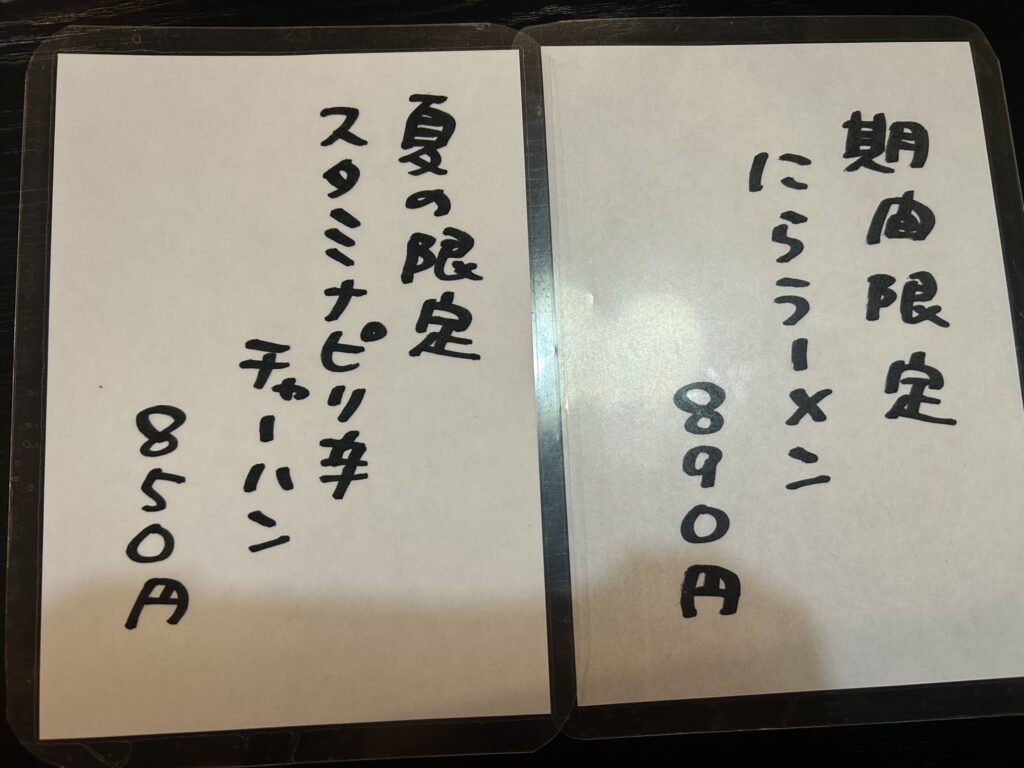 期間限定
にらラーメン
890円
夏の限定
スタミナピリ辛
チャーハン
850円